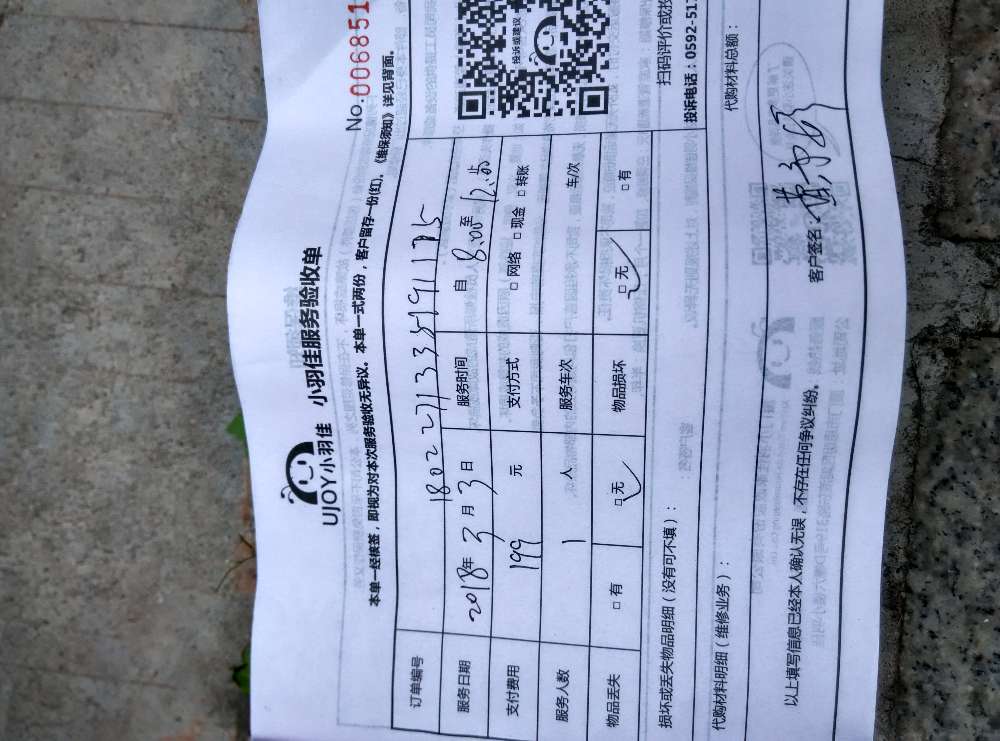 No. 006851
UJOY小羽佳 小羽佳服务验收单
本单一经接签，即视为对本次服务验收无异议。本单一式两份，客户留存一份(红)。《维保须知》详见背面。
订单编号 180227133591125
服务日期 2018年3月3日 服务时间 自8:00至12:00
支付费用 199 元 支付方式 □ 网络 □ 现金 □ 转账
服务人数 1 人 服务车次 车/次
物品丢失 □ 有 □ 无 物品损坏 □ 无 □ 有
投诉或建议
扫码评价或投
投诉电话：0592-517
损坏或丢失物品明细（没有可不填）：
代购材料明细（维修业务）： 代购材料总额：
以上填写信息已经本人确认无误，不存在任何争议纠纷。 客户签名：